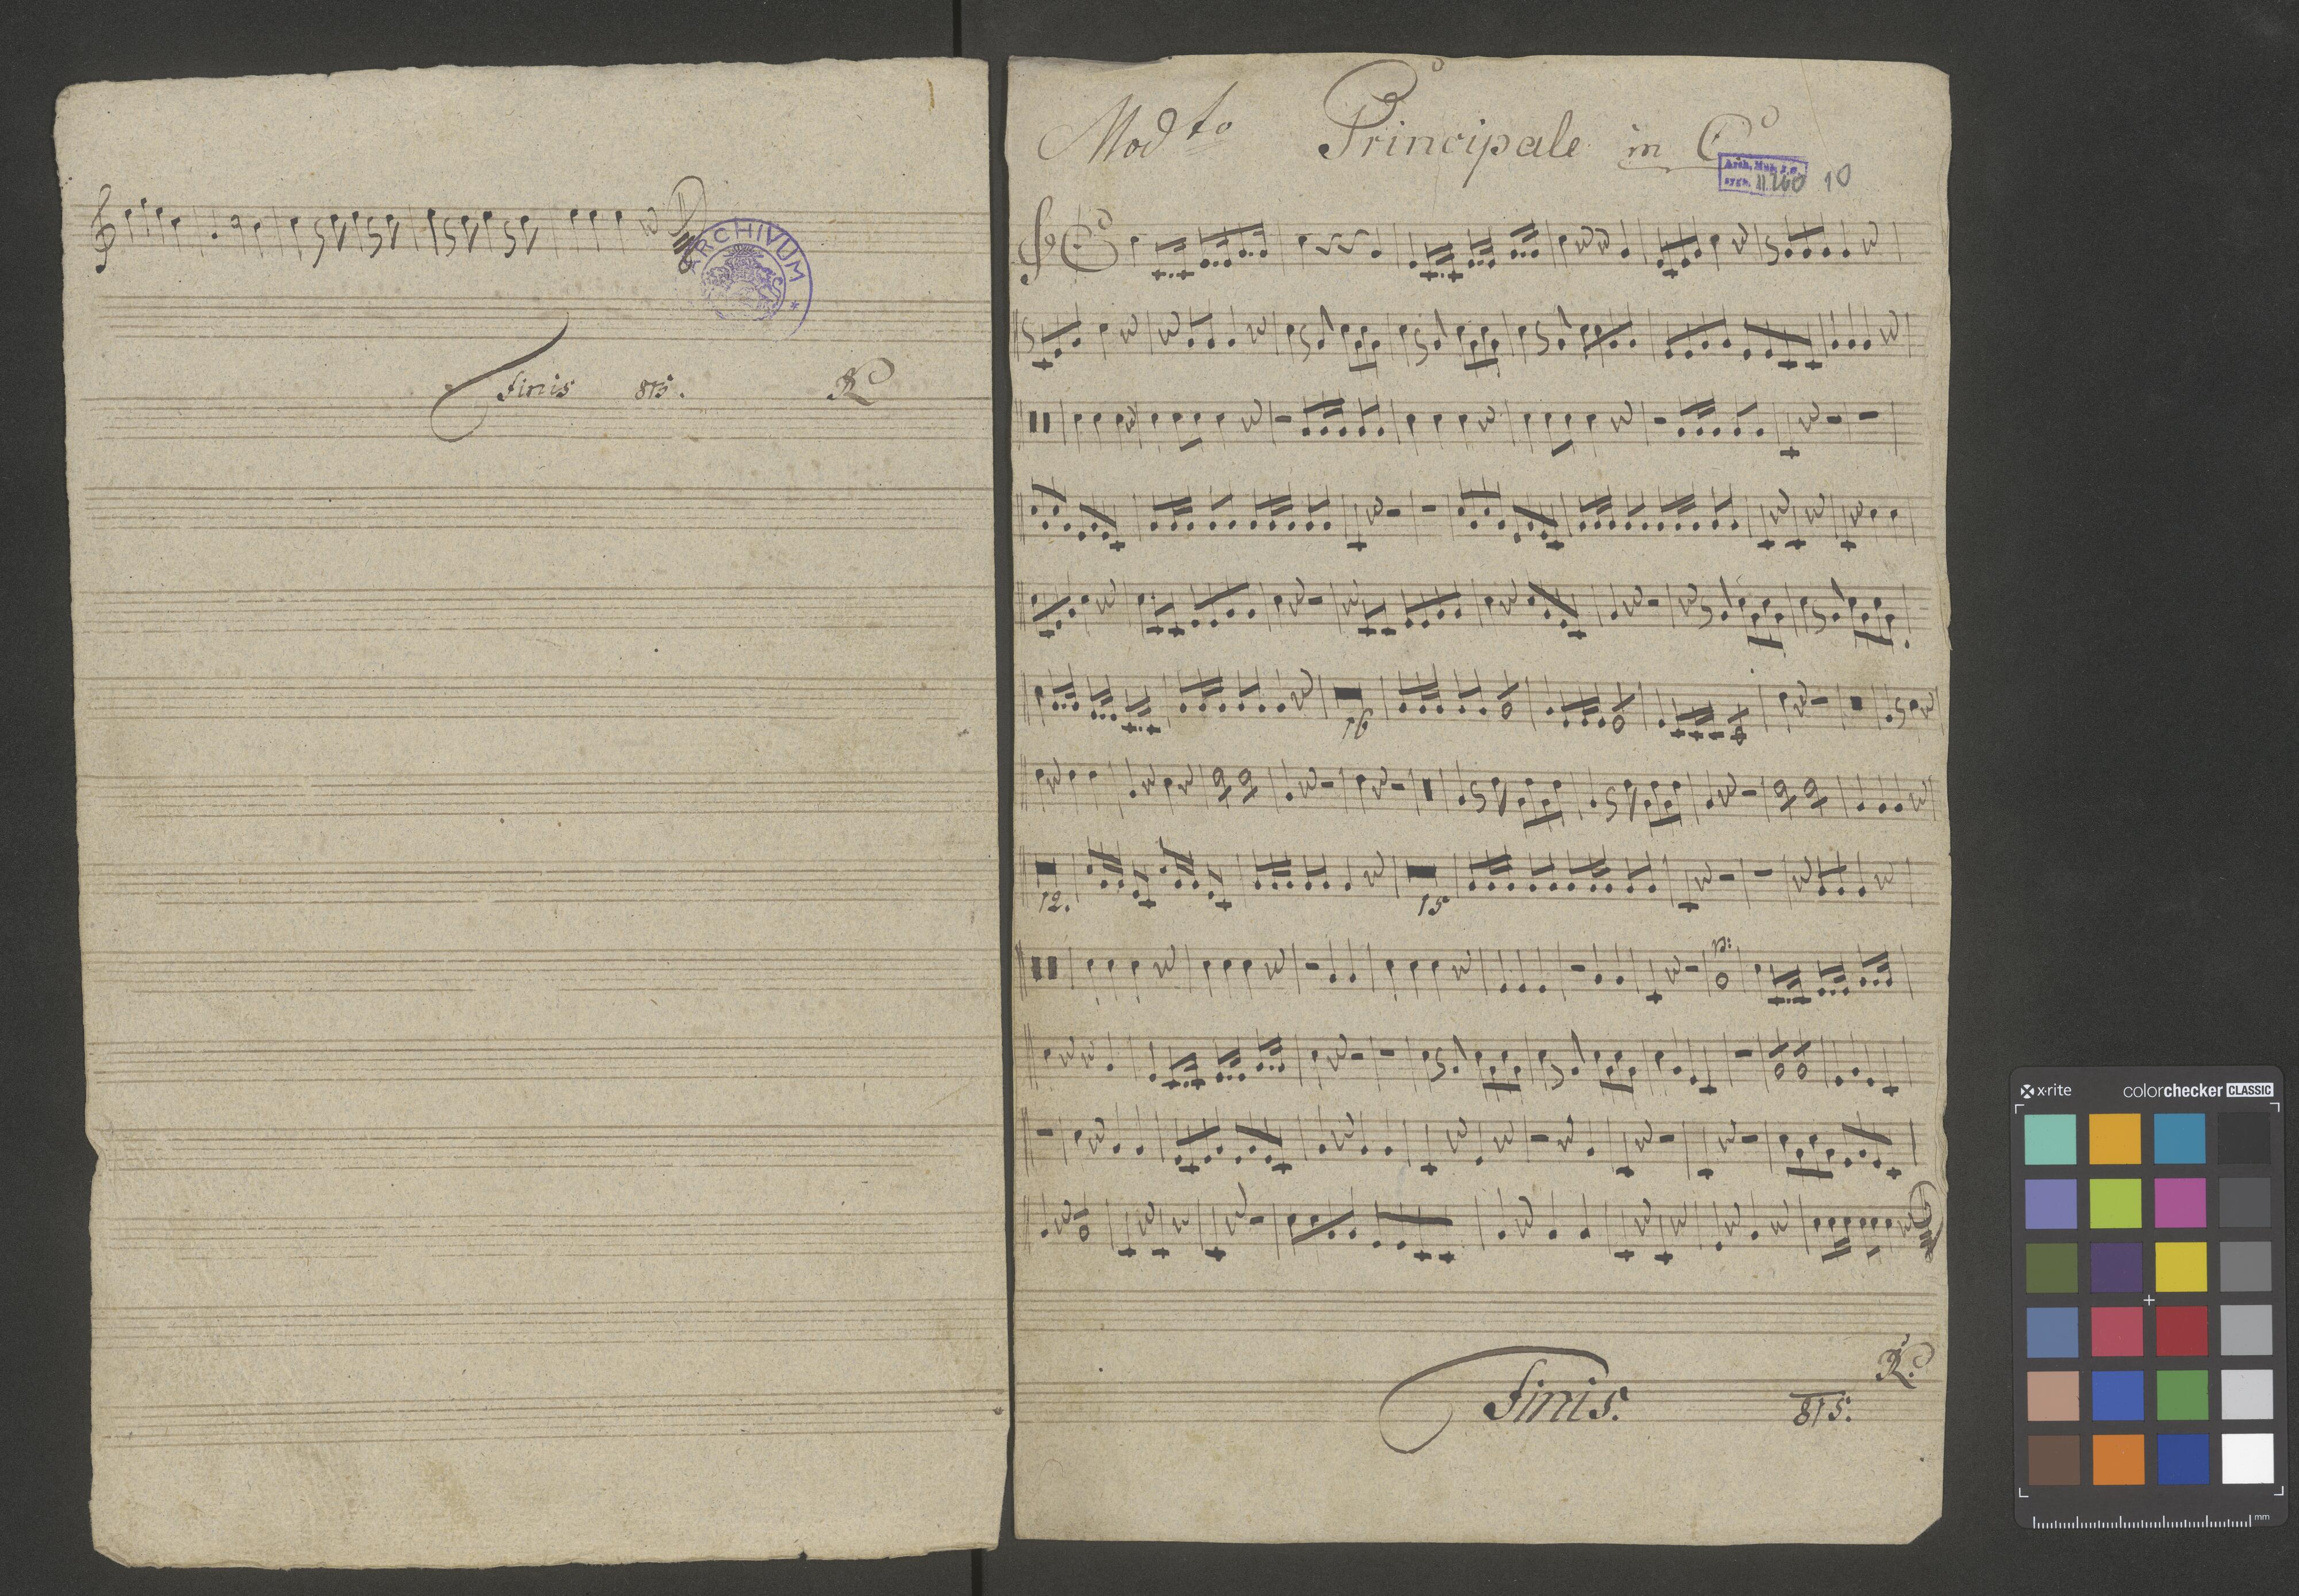 1
Finis 815. K
ARCHIVUM
Modto Principale in C
Arch. Mus. J. G.
sygn. 11 260 10
16
12.
15
p:
Finis.
K.
815.
x·rite colorchecker CLASSIC
mm